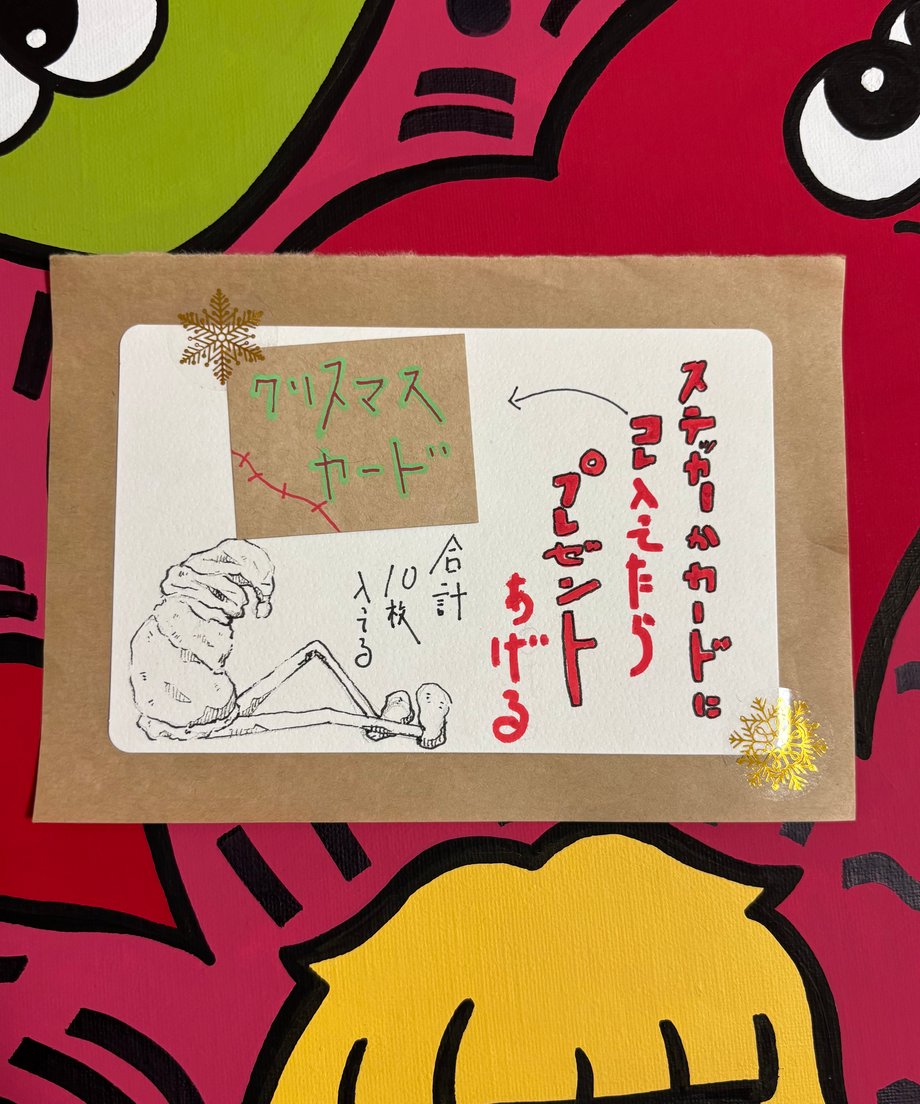 ステッカーかカードに
コレ入ってたら
プレゼント
あげる
クリスマス
カード
合計
10枚
入ってる